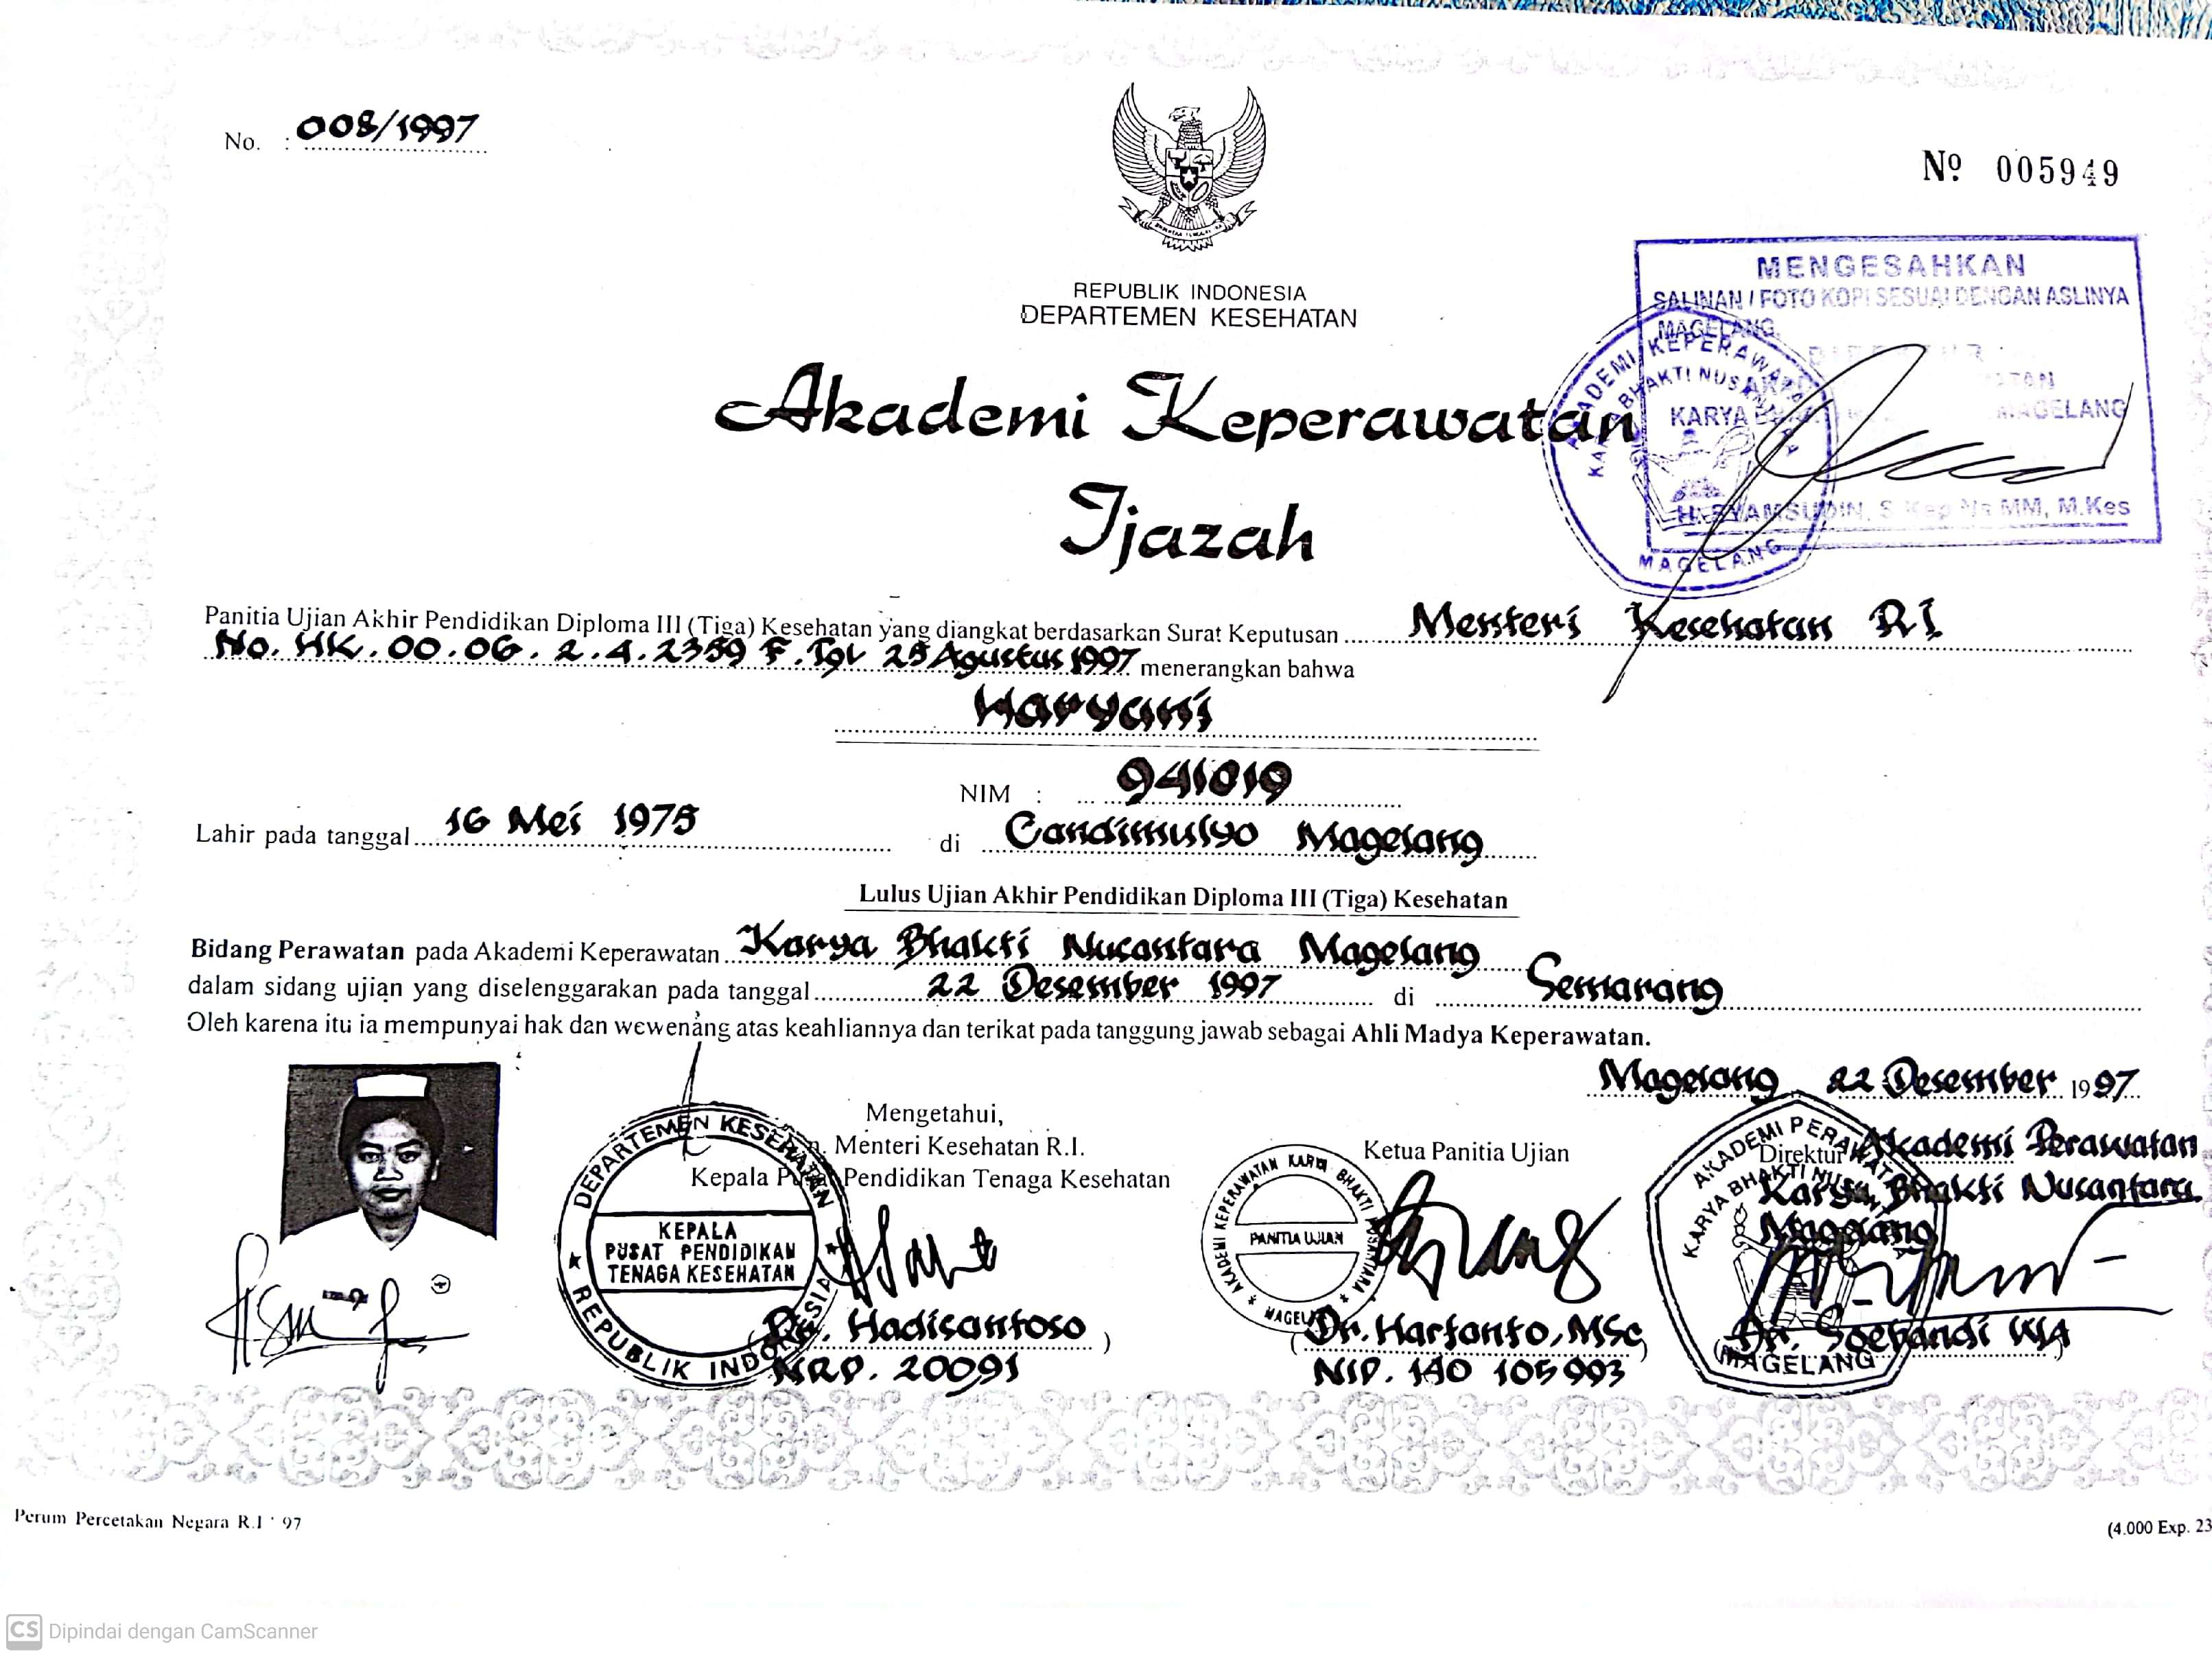 No. : 008/1997
Nº 005949
REPUBLIK INDONESIA
DEPARTEMEN KESEHATAN
MENGESAHKAN
SALINAN / FOTO KOPI SESUAI DENGAN ASLINYA
MAGELANG
MAGELANG
H. SYAMSUDIN, S.Kep Ns MM, M.Kes
AKADEMI KEPERAWATAN
KARYA BHAKTI NUSANTARA
MAGELANG
Akademi Keperawatan
Ijazah
Panitia Ujian Akhir Pendidikan Diploma III (Tiga) Kesehatan yang diangkat berdasarkan Surat Keputusan Menteri Kesehatan RI
No. HK. 00. 06. 2. 4. 2359 F. Tgl 25 Agustus 1997 menerangkan bahwa
Haryani
NIM : 941019
Lahir pada tanggal 16 Mei 1975 di Candimulyo Magelang
Lulus Ujian Akhir Pendidikan Diploma III (Tiga) Kesehatan
Bidang Perawatan pada Akademi Keperawatan Karya Bhakti Nusantara Magelang
dalam sidang ujian yang diselenggarakan pada tanggal 22 Desember 1997 di Semarang
Oleh karena itu ia mempunyai hak dan wewenang atas keahliannya dan terikat pada tanggung jawab sebagai Ahli Madya Keperawatan.
Magelang 22 Desember 1997
Mengetahui,
Menteri Kesehatan R.I.
Kepala Pusat Pendidikan Tenaga Kesehatan
DEPARTEMEN KESEHATAN
KEPALA
PUSAT PENDIDIKAN
TENAGA KESEHATAN
REPUBLIK INDONESIA
(Dr. Hadisantoso)
NRP. 20091
Ketua Panitia Ujian
AKADEMI KEPERAWATAN KARYA BHAKTI NUSANTARA
PANITIA UJIAN
MAGELANG
(Dr. Hartanto, MSc)
NIP. 140 105 993
Direktur Akademi Perawatan
Karya Bhakti Nusantara
Magelang
AKADEMI PERAWATAN
KARYA BHAKTI NUSANTARA
MAGELANG
(Dr. Soebandi WA)
Perum Percetakan Negara R.I ' 97
(4.000 Exp. 23
CS Dipindai dengan CamScanner